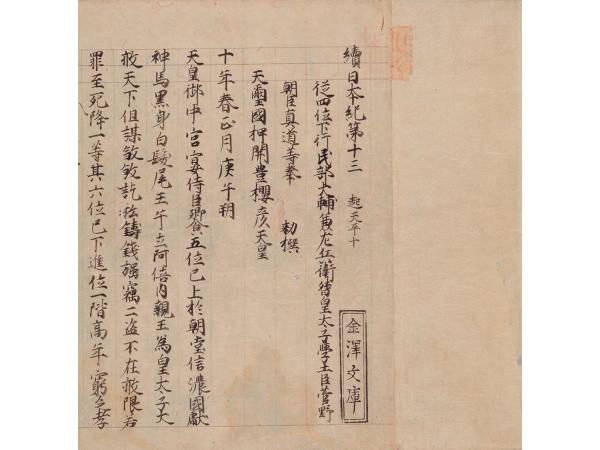 續日本紀第十三 起天平十
從四位下行民部大輔兼左兵衛督皇太子學士臣菅野
朝臣真道等奉 勅撰
天璽國押開豊櫻彦天皇
十年春正月庚午朔
天皇御中宮宴侍臣饗五位已上於朝堂信濃國獻
神馬黒身白髦尾壬午立阿倍內親王為皇太子大
赦天下但謀殺殺訖私鑄錢強竊二盜不在赦限若
罪至死降一等其六位已下進位一階高年窮乏孝
金澤文庫